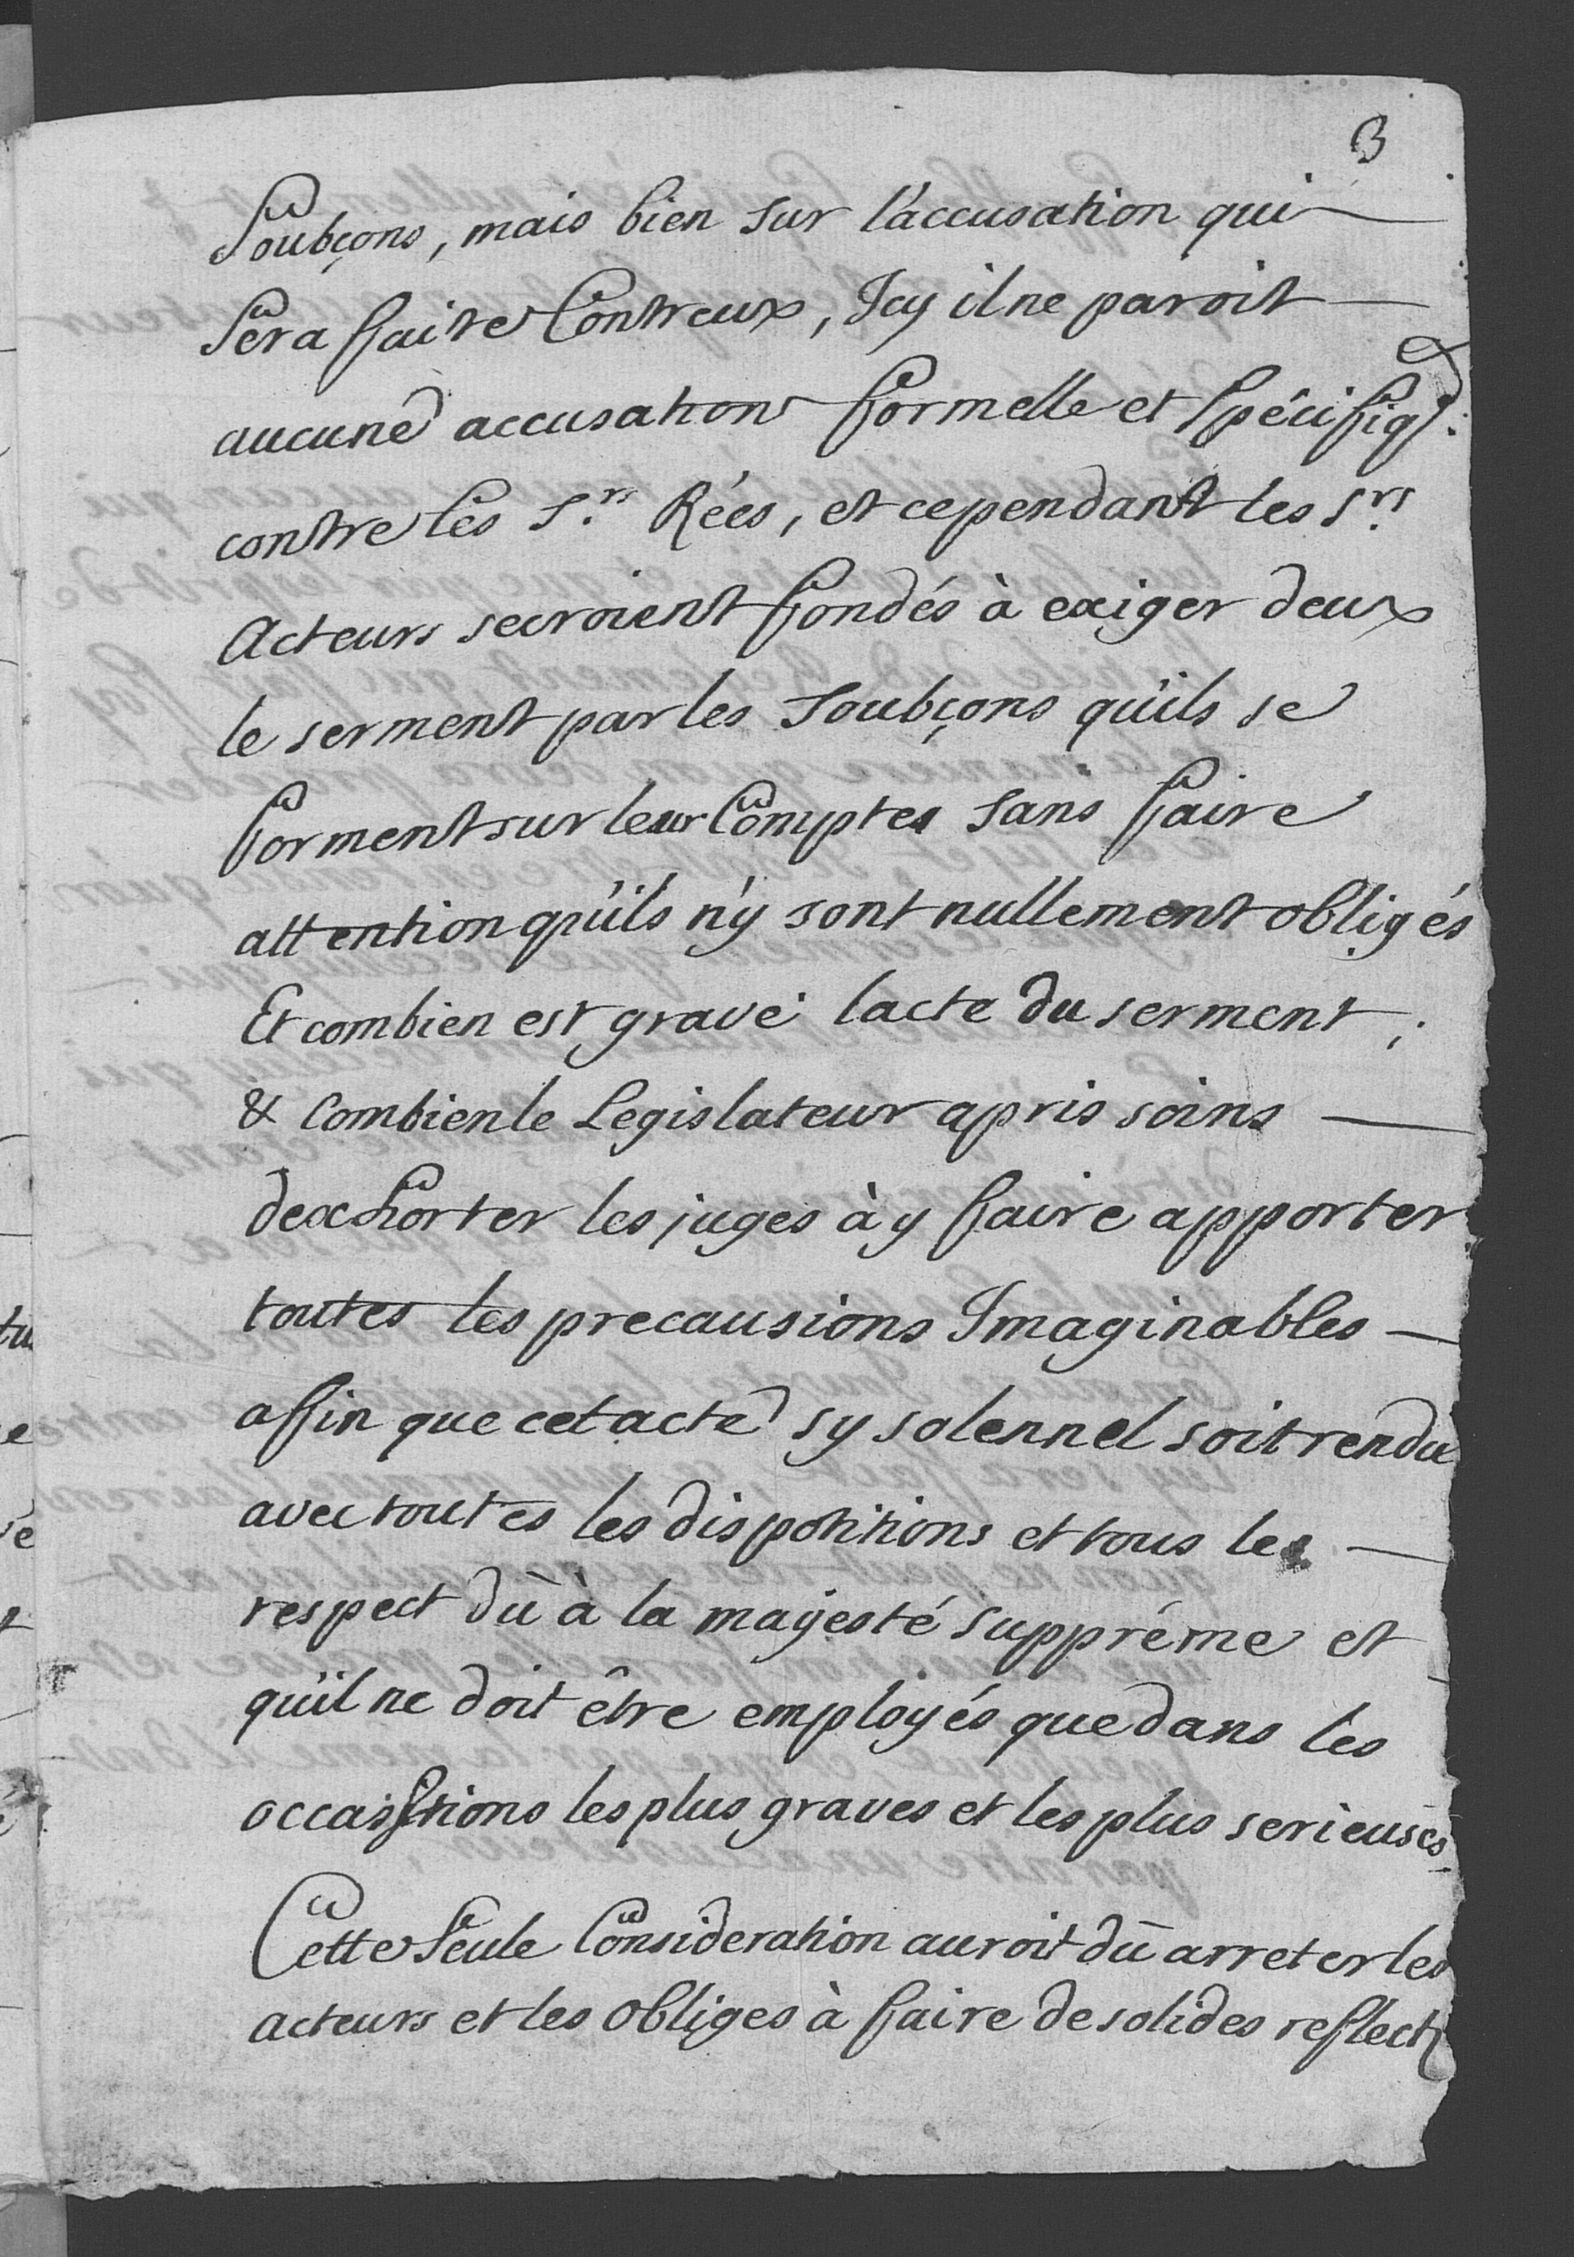 3
Soubçons, mais bien sur l'accusation qui
Sera faite Contreux, Icy il ne paroit
aucune accusation formelle et Spécifiq.
contre les S.rs Rées, et cependant les S.rs
Acteurs seroient fondés à exiger deux
le serment par les Soubçons qu'ils se
forment sur leur Comptes sans faire
attention qu'ils n'y sont nullement obligés
Et combien est grave lacte du serment;
& Combien le Legislateur apris soins
dexhorter les juges à y faire apporter
toutes les precausions Imaginables
affin que cet acte sy solennel soit rendu
avec toutes les dispotitions et tous les
respect dû à la mayesté suppréme et
qu'il ne doit être employés que dans les
occaissions les plus graves et les plus serieuses
Cette Seule Consideration auroit dû arreter les
acteurs et les obliges à faire de solides reflect